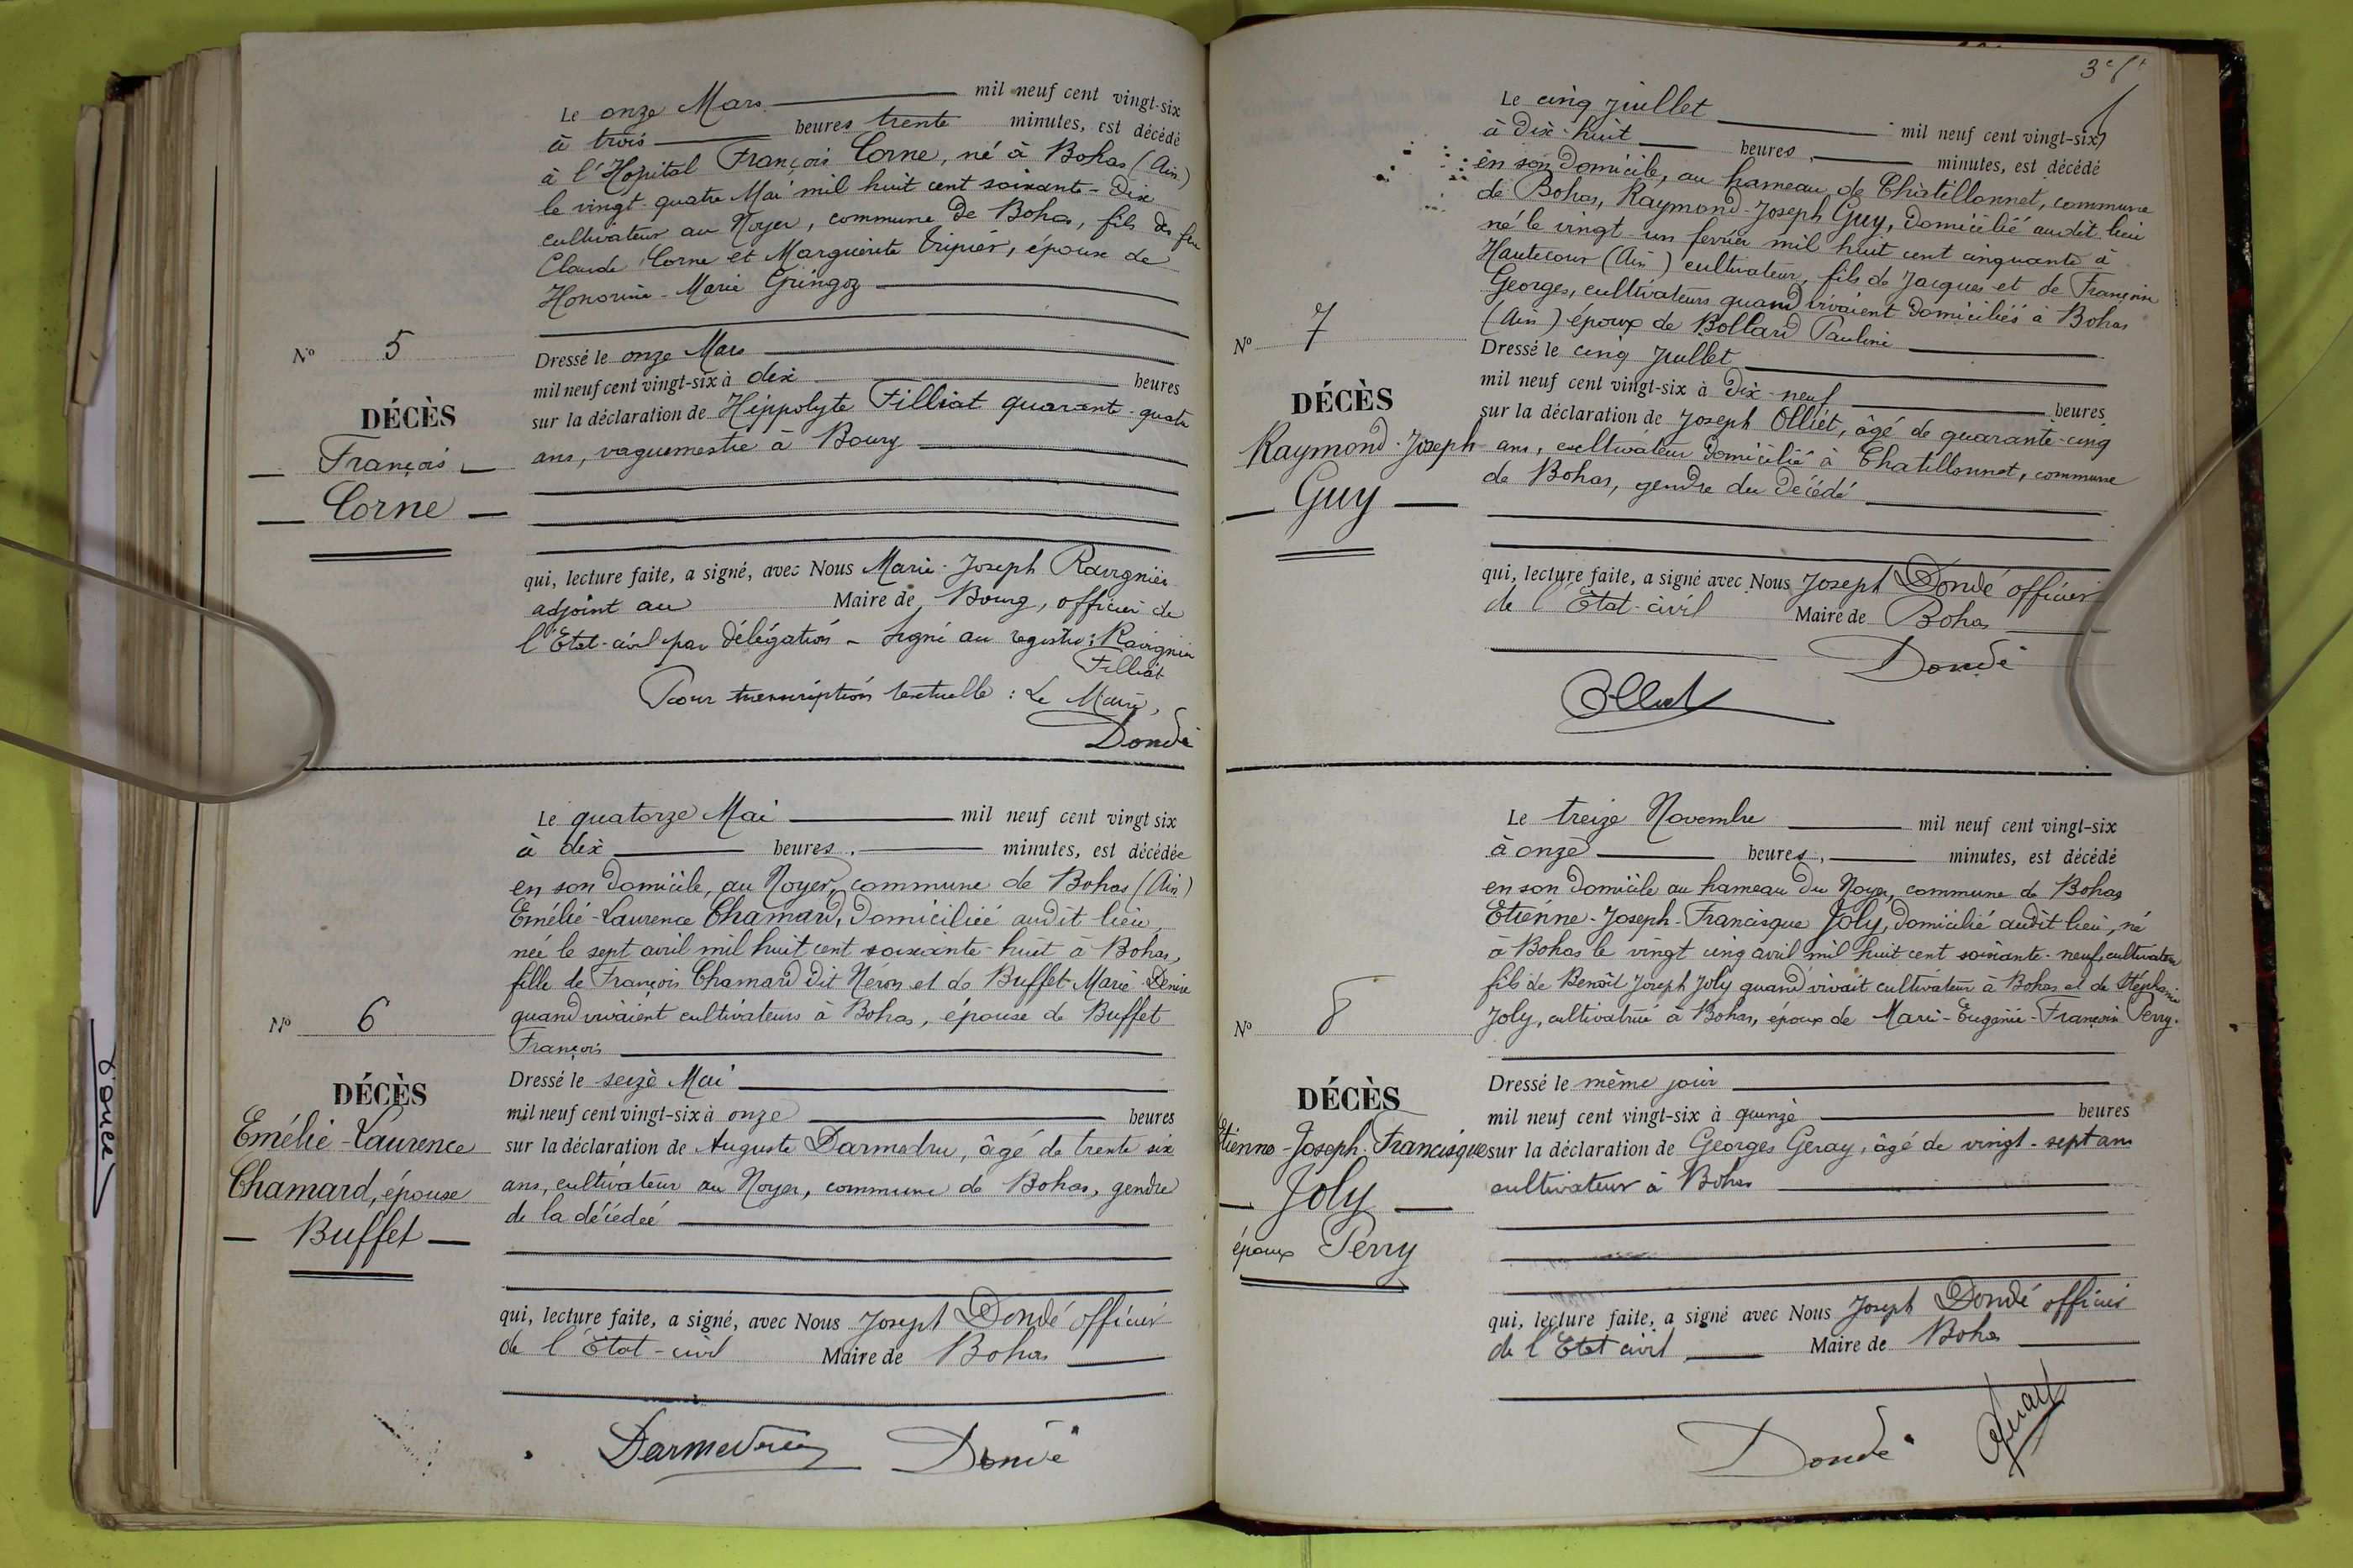 Le onze Mars mil neuf cent vingt-six
à trois heures trente minutes, est décédé
à l'Hopital François Corne, né à Bohas (Ain)
le vingt-quatre Mai mil huit cent soixante-dix
cultivateur au Noyer, commune de Bohas, fils des feu
Claude Corne et Marguerite Tripier, époux de
Honorine-Marie Gringoz
Nº 5
DÉCÈS
François
Corne
Dressé le onze Mars
mil neuf cent vingt-six à dix heures
sur la déclaration de Hippolyte Filliat quarante-quatre
ans, vaguemestre à Bourg
qui, lecture faite, a signé, avec Nous Marie-Joseph Ravignier
adjoint au Maire de Bourg, officier de
l'Etat-civil par délégation - Signé au registre: Ravignier
Filliat
Pour transcription textuelle : Le Maire,
Dondé
Le quatorze Mai mil neuf cent vingt six
à dix heures, minutes, est décédée
en son domicile, au Noyer, commune de Bohas (Ain)
Emélie-Laurence Chamard, domiciliée audit lieu,
née le sept avril mil huit cent soixante-huit à Bohas,
fille de François Chamard dit Néron et de Buffet Marie-Denise
quand vivaient cultivateurs à Bohas, épouse de Buffet
François
Nº 6
DÉCÈS
Emélie-Laurence
Chamard, épouse
Buffet
Dressé le seize Mai
mil neuf cent vingt-six à onze heures
sur la déclaration de Auguste Darmedru, âgé de trente six
ans, cultivateur au Noyer, commune de Bohas, gendre
de la décédée
qui, lecture faite, a signé, avec Nous Joseph Dondé officier
de l'Etat-civil Maire de Bohas
Darmedru Dondé
3e ft
Le cinq Juillet mil neuf cent vingt-six
à dix-huit heures, minutes, est décédé
en son domicile, au hameau de Châtillonnet, commune
de Bohas, Raymond-Joseph Guy, domicilié audit lieu
né le vingt-un février mil huit cent cinquante à
Hautecour (Ain) cultivateur, fils de Jacques et de Françoise
Georges, cultivateurs quand vivaient domiciliés à Bohas
(Ain) époux de Bollard Pauline
Nº 7
DÉCÈS
Raymond-Joseph
Guy
Dressé le cinq Juillet
mil neuf cent vingt-six à dix-neuf heures
sur la déclaration de Joseph Olliet, âgé de quarante-cinq
ans, cultivateur domicilié à Chatillonnet, commune
de Bohas, gendre du décédé
qui, lecture faite, a signé avec Nous Joseph Dondé officier
de l'Etat-civil Maire de Bohas
Dondé
Olliet
Le treize Novembre mil neuf cent vingt-six
à onze heures, minutes, est décédé
en son domicile au hameau du Noyer, commune de Bohas
Etienne-Joseph-Francisque Joly, domicilié audit lieu, né
à Bohas le vingt cinq avril mil huit cent soixante-neuf, cultivateur
fils de Benoît Joseph Joly quand vivait cultivateur à Bohas et de Stéphanie
Joly, cultivatrice à Bohas, époux de Marie-Eugénie-Françoise Perry.
Nº 8
DÉCÈS
Etienne-Joseph-Francisque
Joly
époux Perry
Dressé le même jour
mil neuf cent vingt-six à quinze heures
sur la déclaration de Georges Geray, âgé de vingt-sept ans
cultivateur à Bohas
qui, lecture faite, a signé avec Nous Joseph Dondé officier
de l'Etat civil Maire de Bohas
Dondé